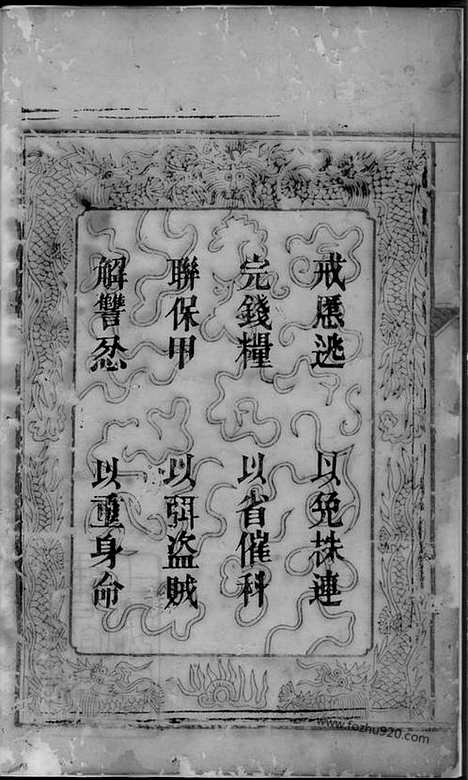 戒慝逃 以免株連
完錢糧 以省催科
聯保甲 以弭盜賊
解讐忿 以重身命
www.fozhu920.com